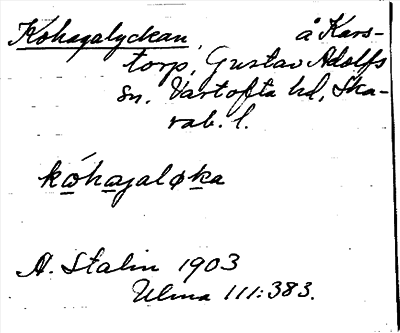 Kohagalyckan, å Kars-
torp, Gustav Adolfs
sn. Vartofta hd, Ska-
rab. l.
kóhagaløka
A. Stalin 1903
Ulma 111:383.